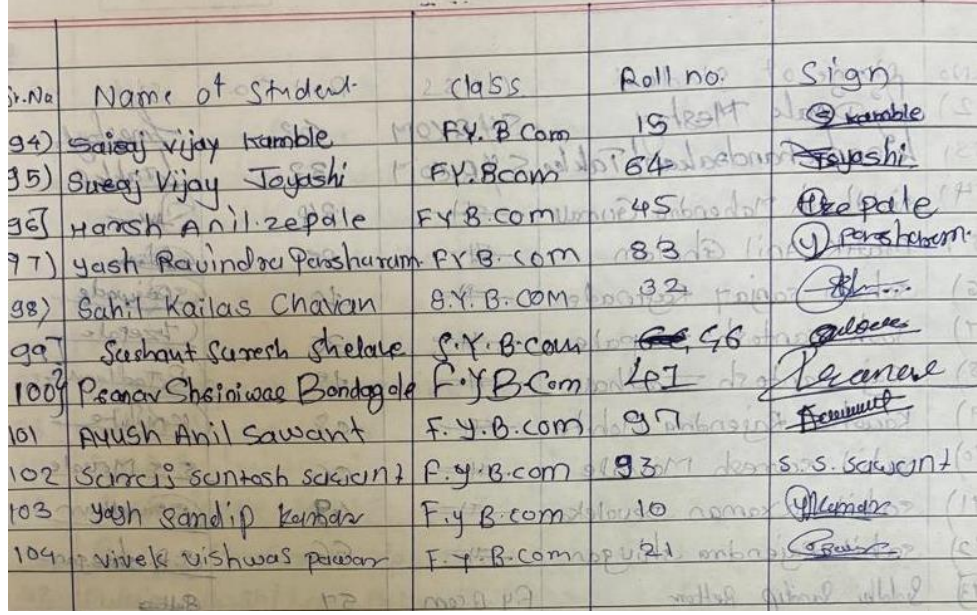 Sr.No Name of Student. Class Roll no. Sign
94) Sairaj Vijay Kamble F.Y. B Com 15 Kamble
95) Suraj Vijay Joyashi F.Y. Bcom 64 Joyashi
96] Harsh Anil. zepale F Y B. com 45 Hzepale
97) Yash Ravindra Parsharam. F Y B. com 83 Y Parsharam.
98) Sahil Kailas Chavan S.Y. B. COM 32
99] Sushant Suresh Shelave S.Y. B. com 56
100] Pranav Shriniwas Bandagale F.Y B Com 41
101 Ayush Anil Sawant F. Y. B. com 97
102 Suraj Santosh Sawant F. y. B. com 93 S. S. Sawant
103 Yash Sandip Kumar F. y B. com 10 YKumar
104 vivek vishwas pawar F. Y. B. com 21